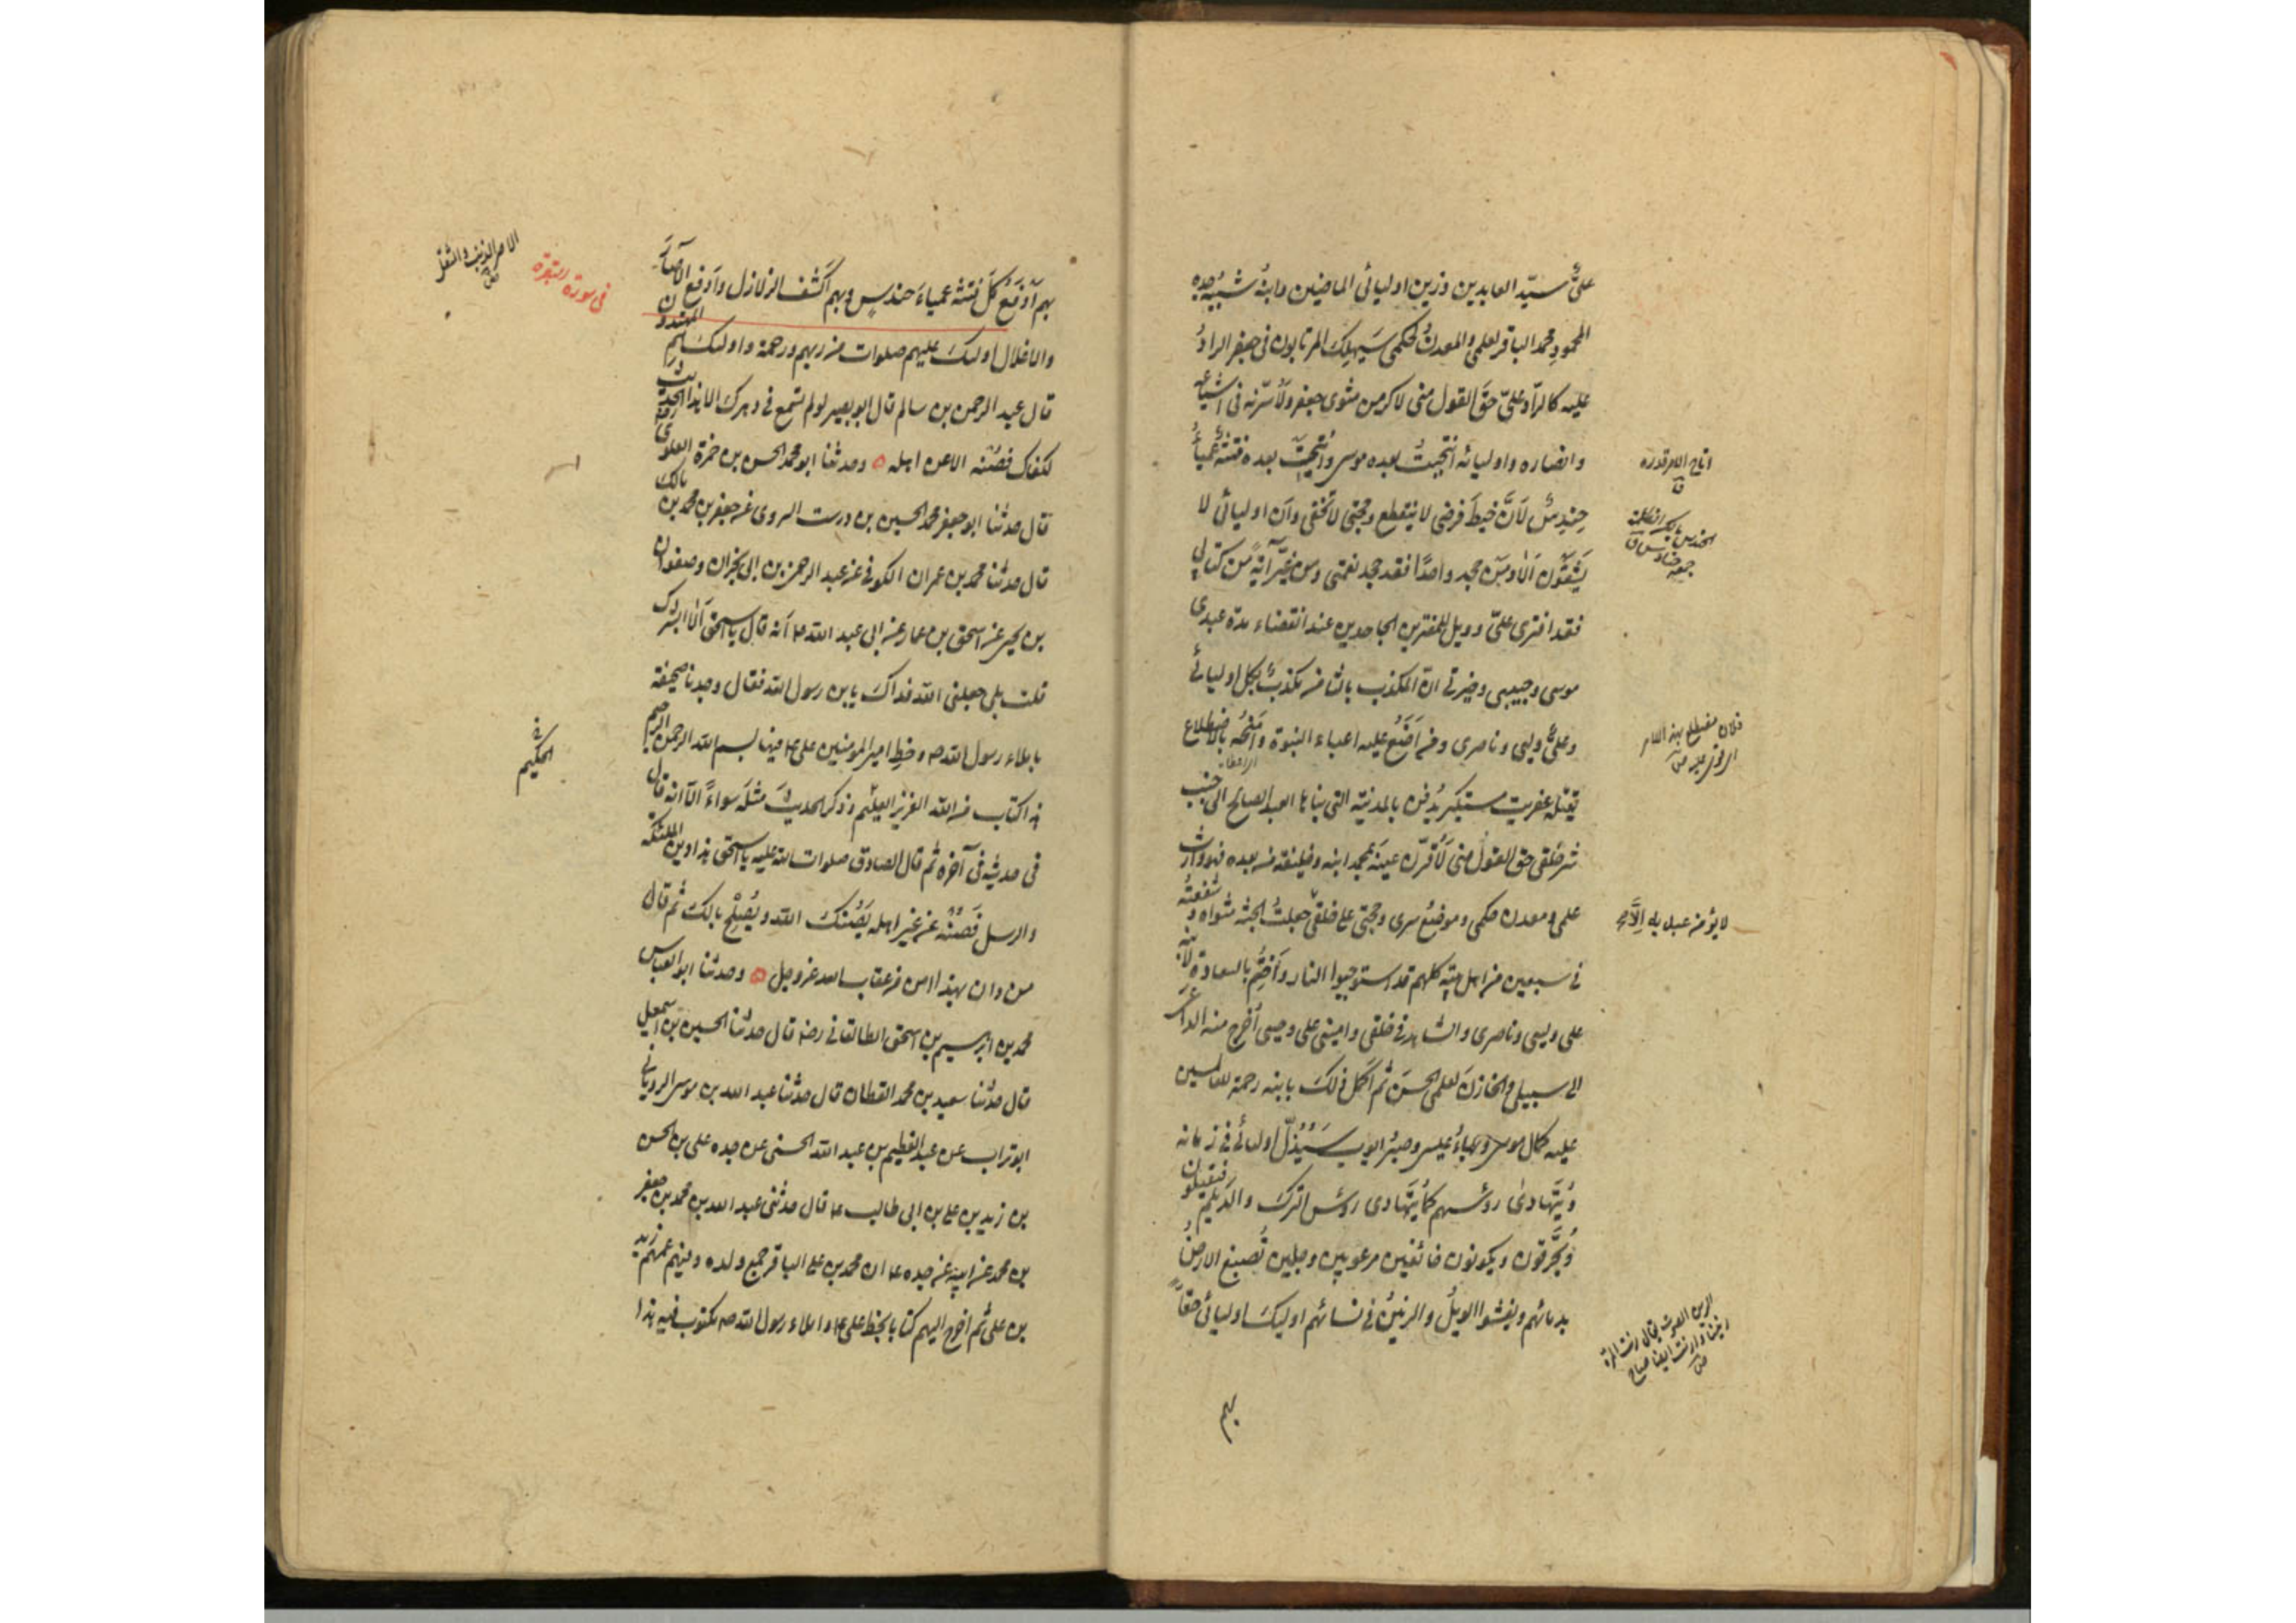 علىٌّ سيّد العابدين وزين اوليائى الماضين وابنهُ شبيهُ جدِه
المحمودِ محمد الباقر لعلمى والمعدنُ لحكمى سَيَهلِكُ المرتابون فى جعفر الرادُ
عليه كالرّاد علىّ حَقَّ القول منى لاكرمن مثوى جعفر ولاُسّرنه فى اشياعه
وانصاره واوليائه انتجبتُ بعده موسى وانتجبتُ بعده فتنةً عمياءُ
حِندِسٌ لَانَّ خيطَ فرضى لا ينقطع وحجتى لا تخفى وان اوليائى لا
يَشقَون اَلا ومَن جحد واحدًا فقد جحد نعمتى ومن غيَّر آيةً من كتابى
فقد افترى علىّ وويل للمفترين الجاحدين عند انقضاء مدة عبدى
موسى وحبيبى وخيرتى ان المكذب بالثامن مكذبٌ بكل اوليائى
وعلىٌّ وليى وناصرى ومن اَضَعُ عليه اعباء النبوة وامنحُه بالاضطلاع
يقتله عفريت مستكبر يُدفن بالمدينة التى بناها العبد الصالح الى جنب
شر خلقى حق القولُ منى لَاُقرّن عينَه بمحمد ابنه وخليفته من بعده فهو وارث
علمى ومعدن حكمى وموضعُ سرى وحجتى على خلقى جعلتُ الجنة مثواه وشفعتُه
فى سبعين من اهل بيته كلهم قد استوجبوا النار وأَختِمُ بالسعادة لابنه
على وليى وناصرى والشاهد فى خلقى وامينى على وحيى اُخرج منه الداعى
الى سبيلى والخازنَ لعلمى الحسنَ ثم اُكمل ذلك بابنه رحمة للعالمين
عليه كمال موسى وبهاءُ عيسى وصبرُ ايوب سَيُذَلّ اوليائى فى زمانه
ويُتَهادىٰ رؤسهم كما يُتَهادى رؤس الترك والديلم فيقتلون
ويُحرَقون ويكونون خائفين مرعوبين وجلين تُصبغ الارضُ
بدمائهم ويفشوا الويلُ والرنينُ فى نسائهم اوليك اوليائى حقاً
بهم
لا يؤمن عبد به اِلَّا
بهم اَدفَعُ كلَّ فتنة عمياءَ حندسٍ وبهم اكشف الزلازل واَدفع الآصارَ
فى سورة البقرة
والاغلال اوليك عليهم صلوات من ربهم ورحمة واوليك هم المهتدون
قال عبد الرحمن بن سالم قال ابو بصير لو لم تسمع فى دهرك الا هذا الحديث
لكفاك فَصُنْه الا عن اهله ه وحدثنا ابو محمد الحسن بن حمزة العلوى
قال حدثنا ابو جعفر محمد الحسين بن درست السروى عن جعفر بن محمد بن مالك
قال حدثنا محمد بن عمران الكوفى عن عبد الرحمن بن ابى نجران وصفوان
بن يحيى عن اسحق بن عمار عن ابى عبد الله ع انه قال يا اسحق الا ابشرك
قلت بلى جعلنى الله فداك يابن رسول الله فقال وجدنا صحيفة
باملاء رسول الله ص وخطِ امير المومنين على ع فيها بسم الله الرحمن الرحيم
هذا كتاب من الله العزيز العليم وذكر الحديثَ مثلَه سواءً الّا انه قال
الحكيم
فى حديثه فى آخره ثم قال الصادق صلوات الله عليه يا اسحق هذا دين الملئكة
والرسل فَصُنْه عن غير اهله يَصُنكَ الله ويُصْلِح بالك ثم قال
من دان بهذا امن من عقاب الله عز وجل ه وحدثنا ابو العباس
محمد بن ابرهيم بن اسحق الطالقانى رضه قال حدثنا الحسين بن اسمعيل
قال حدثنا سعيد بن محمد القطان قال حدثنا عبد الله بن موسى الرويانى
ابو تراب عن عبد العظيم بن عبد الله الحسنى عن جده على بن الحسن
بن زيد بن على بن ابى طالب ع قال حدثنى عبد الله بن محمد بن جعفر
بن محمد عن ابيه عن جده ع ان محمد بن على الباقر جمع ولده وفيهم عمهم زيد
بن على ثم اخرج اليهم كتابا بخط على ع واملاء رسول الله ص مكتوب فيه هذا